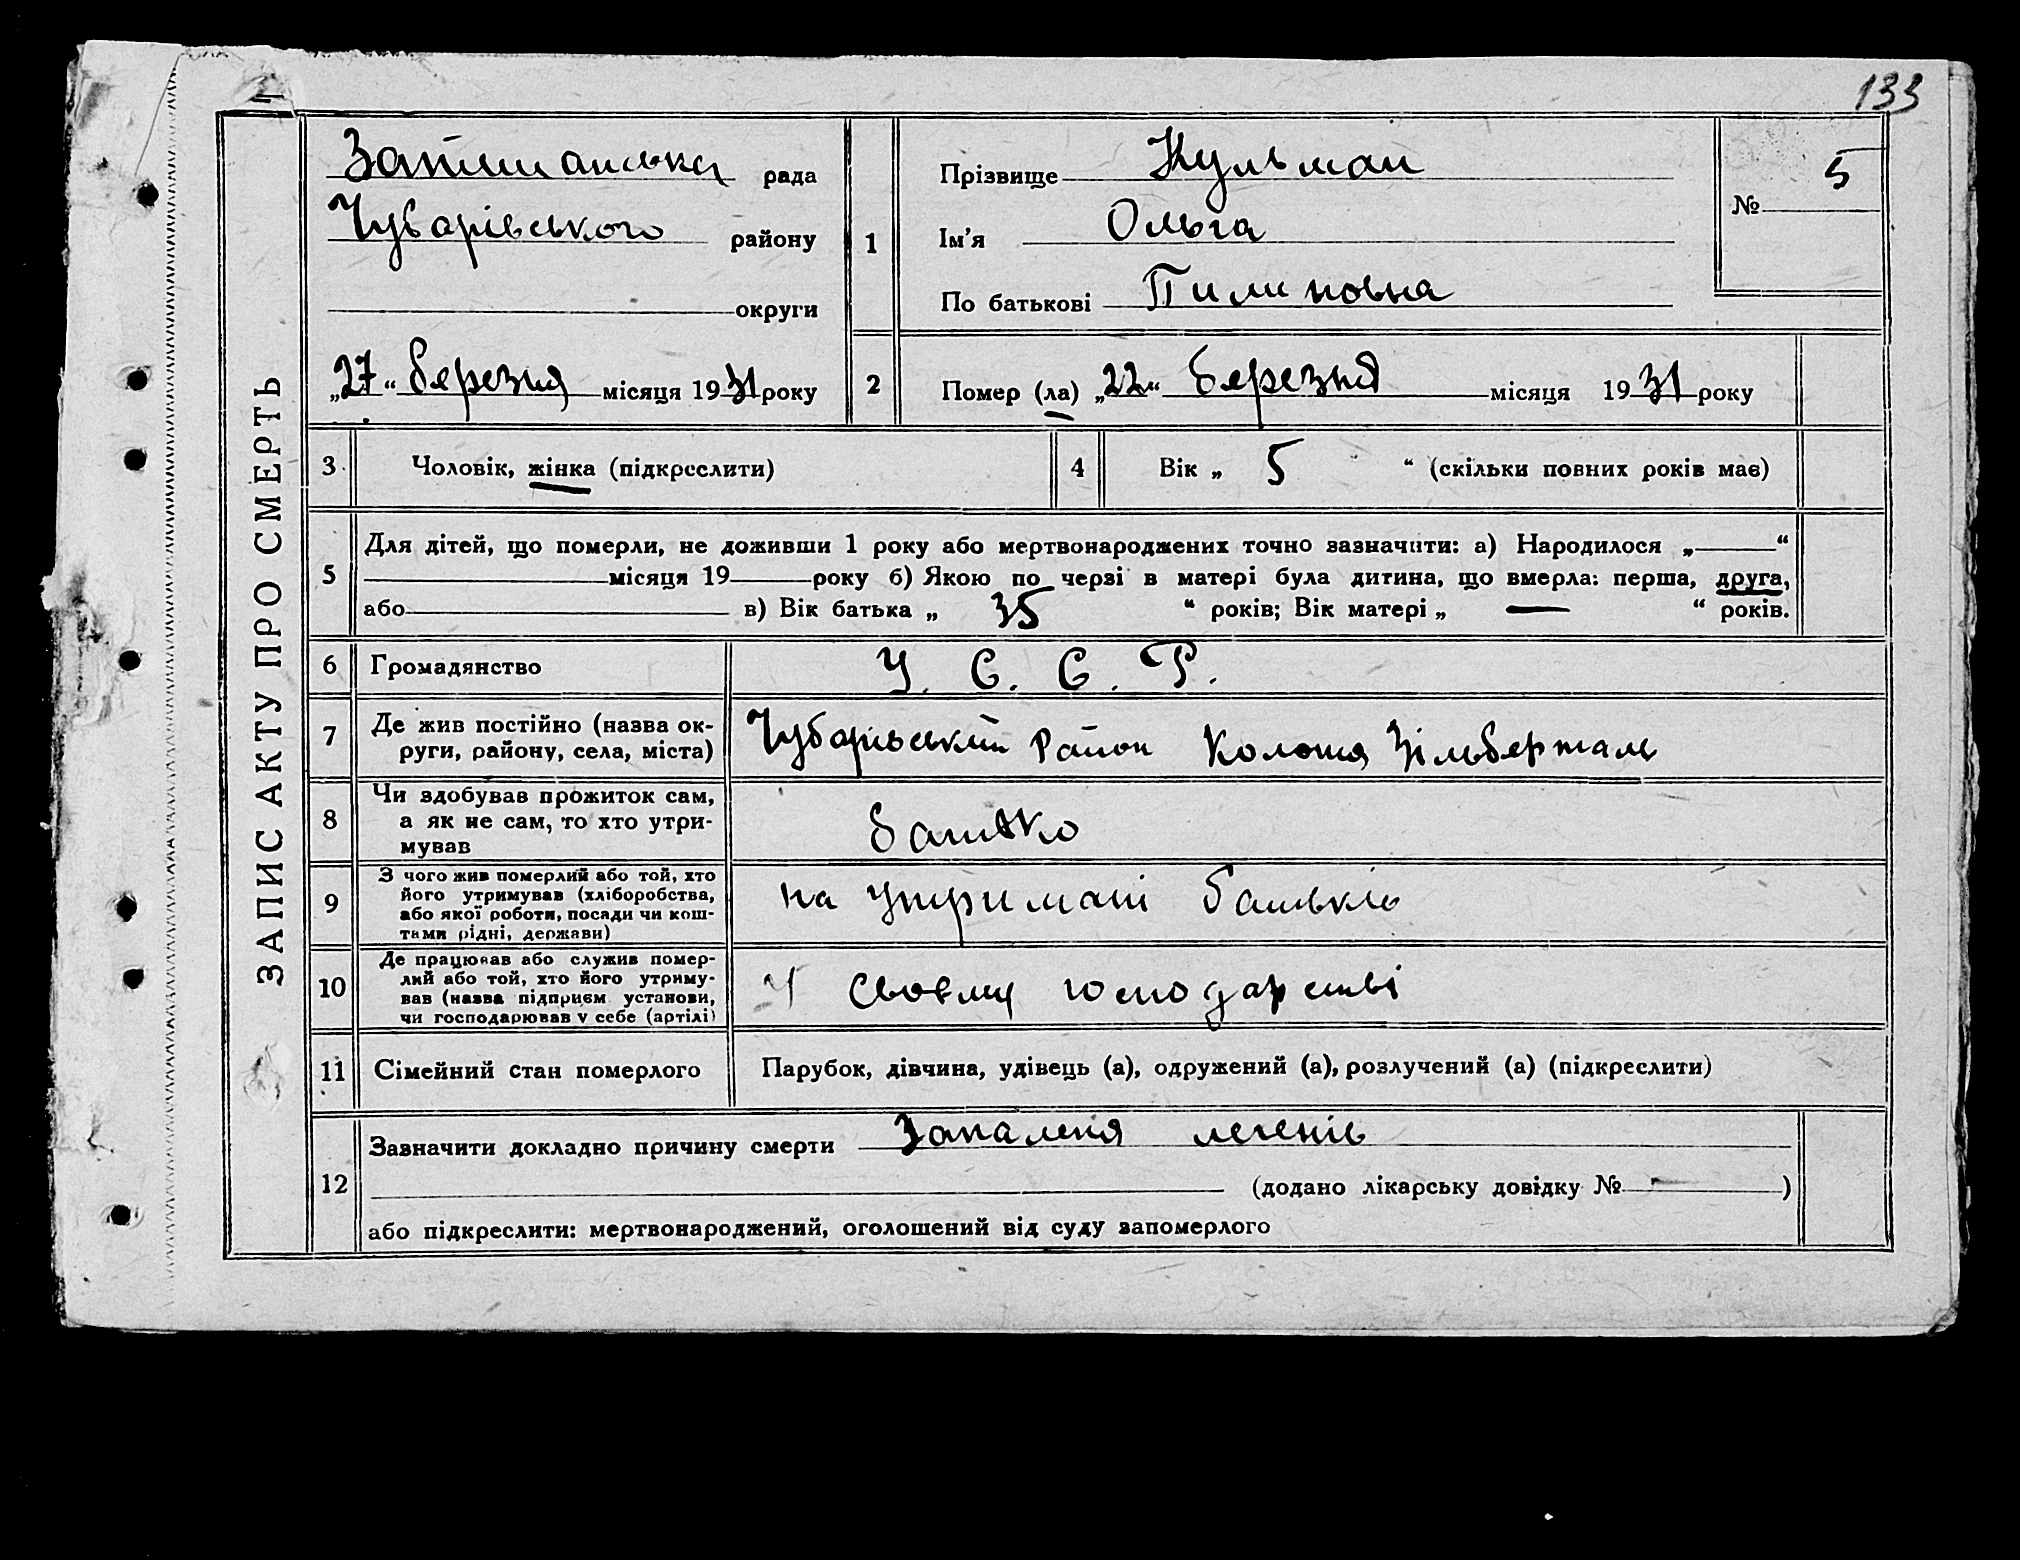 133
ЗАПИС АКТУ ПРО СМЕРТЬ
Затишанська рада
Чубарівського району
округи
„27“ березня місяця 1931 року
1
Прізвище Кульман
Ім'я Ольга
По батькові Пилиповна
№ 5
2
Помер (ла) „22“ березня місяця 1931 року
3 Чоловік, жінка (підкреслити)
4 Вік „ 5 “ (скільки повних років має)
5
Для дітей, що померли, не доживши 1 року або мертвонароджених точно зазначити: а) Народилося „ “
місяця 19 року б) Якою по черзі в матері була дитина, що вмерла: перша, друга,
або в) Вік батька „ 35 “ років; Вік матері „ — “ років.
6 Громадянство У. С. С. Р.
7
Де жив постійно (назва ок-
руги, району, села, міста)
Чубарівський район Колонія Зільберталь
8
Чи здобував прожиток сам,
а як не сам, то хто утри-
мував
батько
9
З чого жив померлий або той, хто
його утримував (хліборобства,
або якої роботи, посади чи кош-
тами рідні, держави)
на утримані батьків
10
Де працював або служив помер-
лий або той, хто його утриму-
вав (назва підприєм установи,
чи господарював у себе (артілі)
У своєму господарстві
11 Сімейний стан померлого Парубок, дівчина, удівець (а), одружений (а), розлучений (а) (підкреслити)
12
Зазначити докладно причину смерти Запаленя легенів
(додано лікарську довідку № - )
або підкреслити: мертвонароджений, оголошений від суду запомерлого